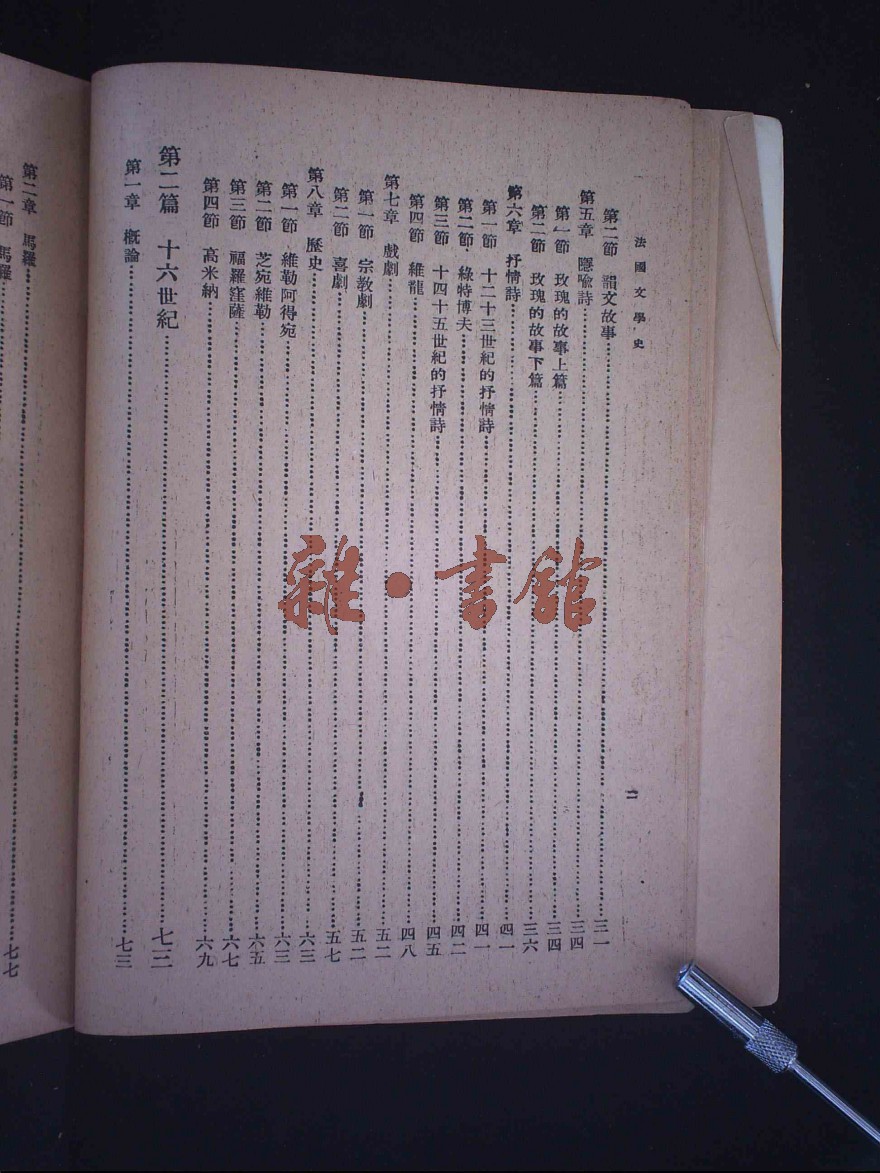 法國文學史
二
第二節 韻文故事……三一
第五章 隱喩詩……三四
第一節 玫瑰的故事上篇……三四
第二節 玫瑰的故事下篇……三六
第六章 抒情詩……四一
第一節 十二十三世紀的抒情詩……四一
第二節 綠特博夫……四二
第三節 十四十五世紀的抒情詩……四五
第四節 維龍……四八
第七章 戲劇……五二
第一節 宗教劇……五二
第二節 喜劇……五七
第八章 歷史……六三
第一節 維勒阿得宛……六三
第二節 芝宛維勒……六五
第三節 福羅窪薩……六七
第四節 高米納……六九
第二篇 十六世紀……七三
第一章 概論……七三
第二章 馬羅……七七
第一節 馬羅……七七
雜·書館